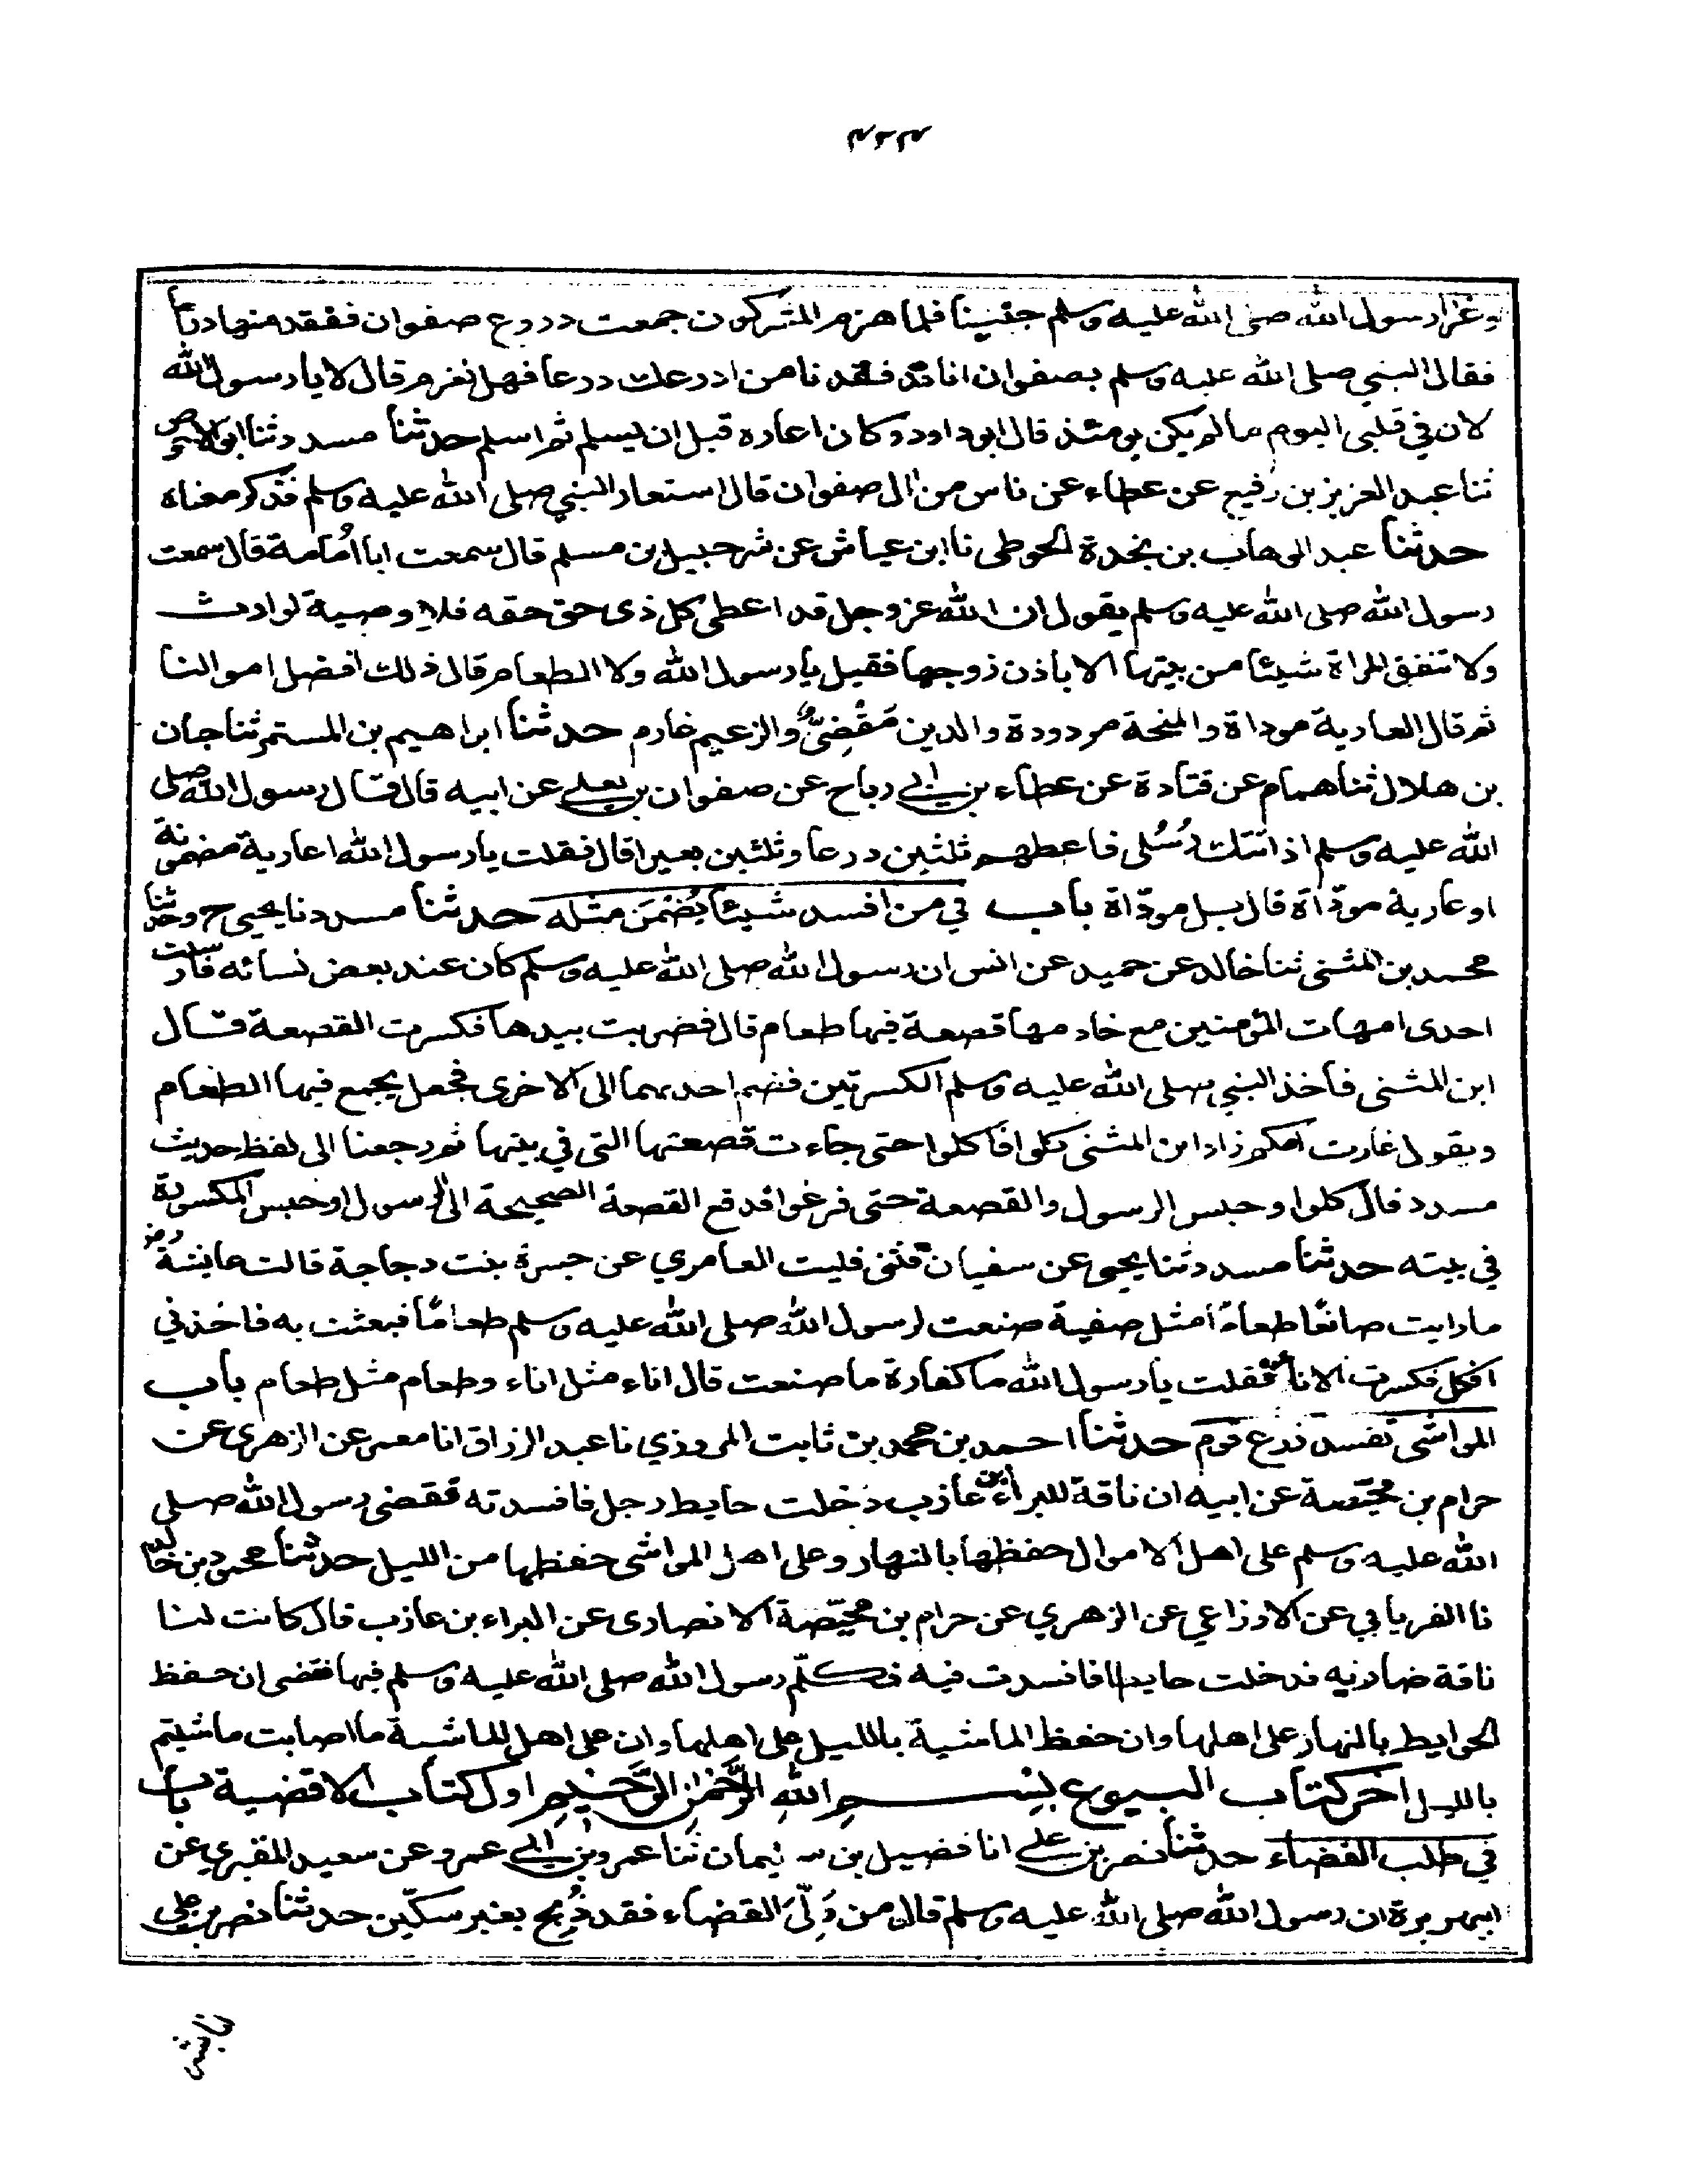 وغزا رسول الله صلى الله عليه وسلم حنينا فلما هزم المشركون جمعت دروع صفوان ففقد منها درعا
فقال النبي صلى الله عليه وسلم بصفوان انا قد فقدنا من ادرعك درعا فهل نغرم قال لا يا رسول الله
لان في قلبي اليوم ما لم يكن يومئذ قال ابو داود وكان اعاره قبل ان يسلم ثم اسلم حدثنا مسدد ثنا ابو الاحوص
ثنا عبد العزيز بن رفيع عن عطاء عن ناس من ال صفوان قال استعار النبي صلى الله عليه وسلم فذكر معناه
حدثنا عبد الوهاب بن نجدة الحوطى نا ابن عياش عن شرحبيل بن مسلم قال سمعت ابا اُمامة قال سمعت
رسول الله صلى الله عليه وسلم يقول ان الله عز وجل قد اعطى كل ذى حق حقه فلا وصية لوارث
ولا تنفق المراة شيئا من بيتها الا باذن زوجها فقيل يا رسول الله ولا الطعام قال ذلك افضل اموالنا
ثم قال العارية موداة والمنحة مردودة والدين مَقْضِىٌّ والزعيم غارم حدثنا ابراهيم بن المستمر ثنا حبان
بن هلال ثنا همام عن قتادة عن عطاء بن ابي رباح عن صفوان بن يعلى عن ابيه قال قال رسول الله صلى
الله عليه وسلم اذا اتتك رُسُلى فاعطهم ثلثين درعا وثلثين بعيرا قال فقلت يا رسول الله اعارية مضمونة
او عارية مودّاة قال بل مودّاة باب في من افسد شيئا يُضْمَن مثله حدثنا مسدد نا يحيى ح وحدثنا
محمد بن المثنى ثنا خالد عن حميد عن انس ان رسول الله صلى الله عليه وسلم كان عند بعض نسائه فارسلت
احدى امهات المؤمنين مع خادمها قصعة فيها طعام قال فضربت بيدها فكسرت القصعة قال
ابن المثنى فاخذ النبي صلى الله عليه وسلم الكسرتين فضم احدىهما الى الاخرى فجعل يجمع فيها الطعام
ويقول غارت امكم زاد ابن المثنى كلوا فاكلوا حتى جاءت قصعتها التى في بيتها ثم رجعنا الى لفظ حديث
مسدد قال كلوا وحبس الرسول والقصعة حتى فرغوا فدفع القصعة الصحيحة الى الرسول وحبس المكسورة
في بيته حدثنا مسدد ثنا يحيى عن سفيان فليت العامري عن جسرة بنت دجاجة قالت عايشة رض
ما رايت صانعًا طعامًا مثل صفية صنعت لرسول الله صلى الله عليه وسلم طعامًا فبعثت به فاخذني
افكل فكسرت الاناء فقلت يا رسول الله ما كفارة ما صنعت قال اناء مثل اناء وطعام مثل طعام باب
المواشى تفسد زرع قوم حدثنا احمد بن محمد بن ثابت المروزي نا عبد الرزاق انا معمر عن الزهرى عن
حرام بن محيّصة عن ابيه ان ناقة للبراء بن عازب دخلت حايط رجل فافسدته فقضى رسول الله صلى
الله عليه وسلم على اهل الاموال حفظها بالنهار وعلى اهل المواشى حفظها من الليل حدثنا محمود بن خالد
نا الفريابي عن الاوزاعي عن الزهري عن حرام بن محيّصة الانصارى عن البراء بن عازب قال كانت لنا
ناقة ضارية فدخلت حايطا فافسدت فيه فكلّم رسول الله صلى الله عليه وسلم فيها فقضى ان حفظ
الحوايط بالنهار على اهلها وان حفظ الماشية بالليل على اهلها وان على اهل الماشية ما اصابت ماشيتم
بالليل اخر كتاب البيوع بسم الله الرَّحْمٰنِ الرَّحِيم اول كتاب الاقضية باب
في طلب القضاء حدثنا نصر بن علي انا فضيل بن سليمان ثنا عمرو بن ابي عمرو عن سعيد المقبري عن
ابيهريرة ان رسول الله صلى الله عليه وسلم قال من وَلِّىَ القضاء فقد ذُبِح بغير سكّين حدثنا نصر بن على